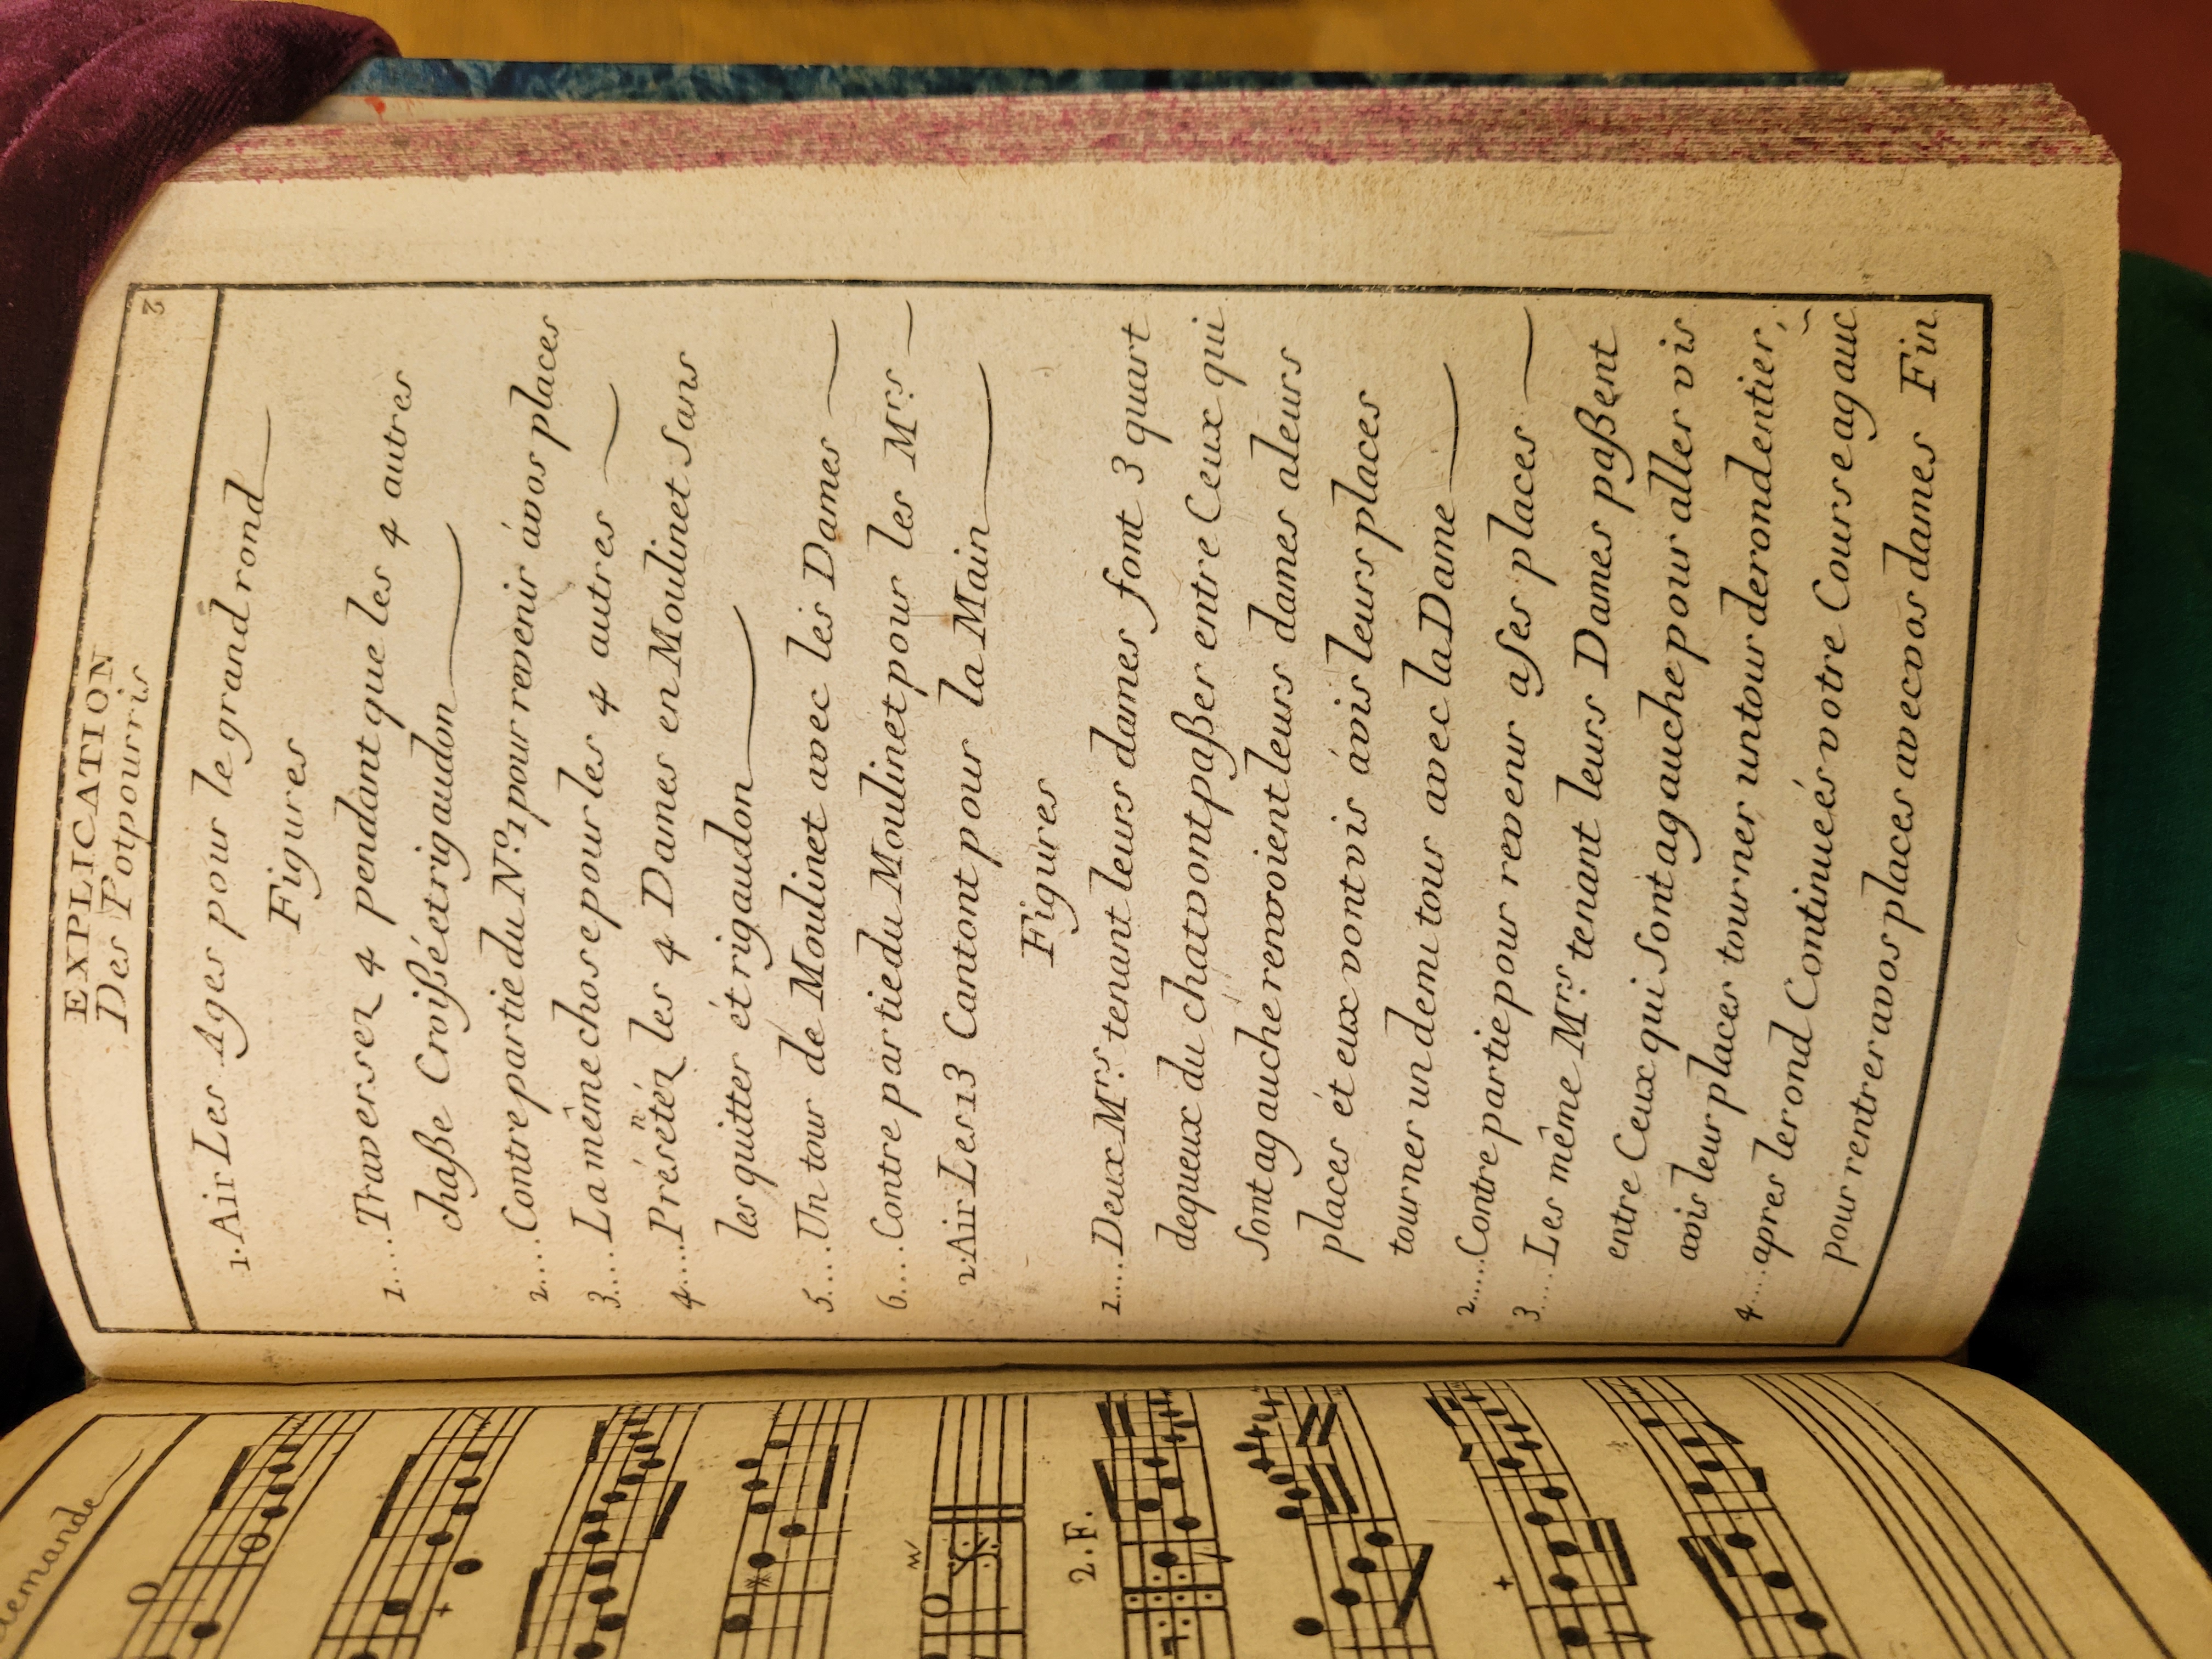 EXPLICATION
Des Potpourris
2
1. Air Les Ages pour le grand rond
Figures
1.... Traversez 4 pendant que les 4 autres
chaße Croißé et rigaudon
2.... Contre partie du No. 1 pour revenir á vos places
3.... La même chose pour les 4 autres
4.... Présẽtéz les 4 Dames en Moulinet Sans
les quitter ét rigaudon
5.... Un tour de Moulinet avec les Dames
6.... Contre partie du Moulinet pour les Mrs.
2. Air Les 13 Cantont pour la Main
Figures
1.... Deux Mrs. tenant leurs dames font 3 quart
de queux du chat vont paßer entre Ceux qui
Sont a gauche renvoient leurs dames a leurs
places ét eux vont vis á vis leurs places
tourner un demi tour avec la Dame
2..... Contre partie pour revenir a Ses places
3..... Les même Mrs. tenant leurs Dames paßent
entre Ceux qui Sont a gauche pour aller vis
avis leur places tourner un tour de rond entier,
4..... apres le rond Continueés votre Course a gauc
pour rentrer a vos places avec vos dames Fin
lemande
2.F.